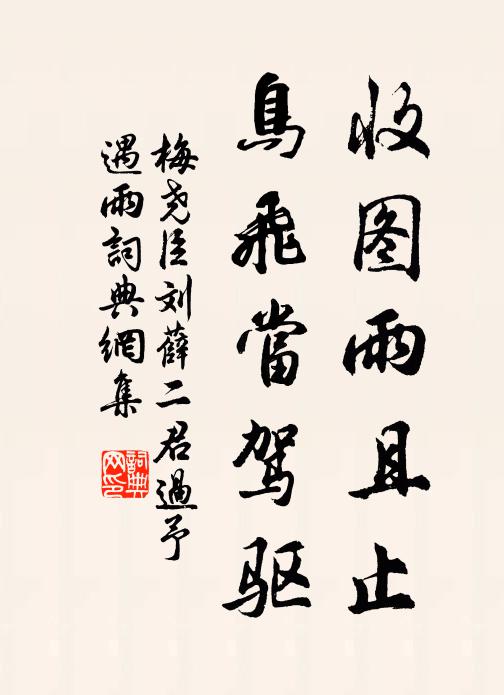 收图雨且止
鳥飛當驾驱
梅尧臣刘薛二君過予
遇雨詞典網集
詞典網印